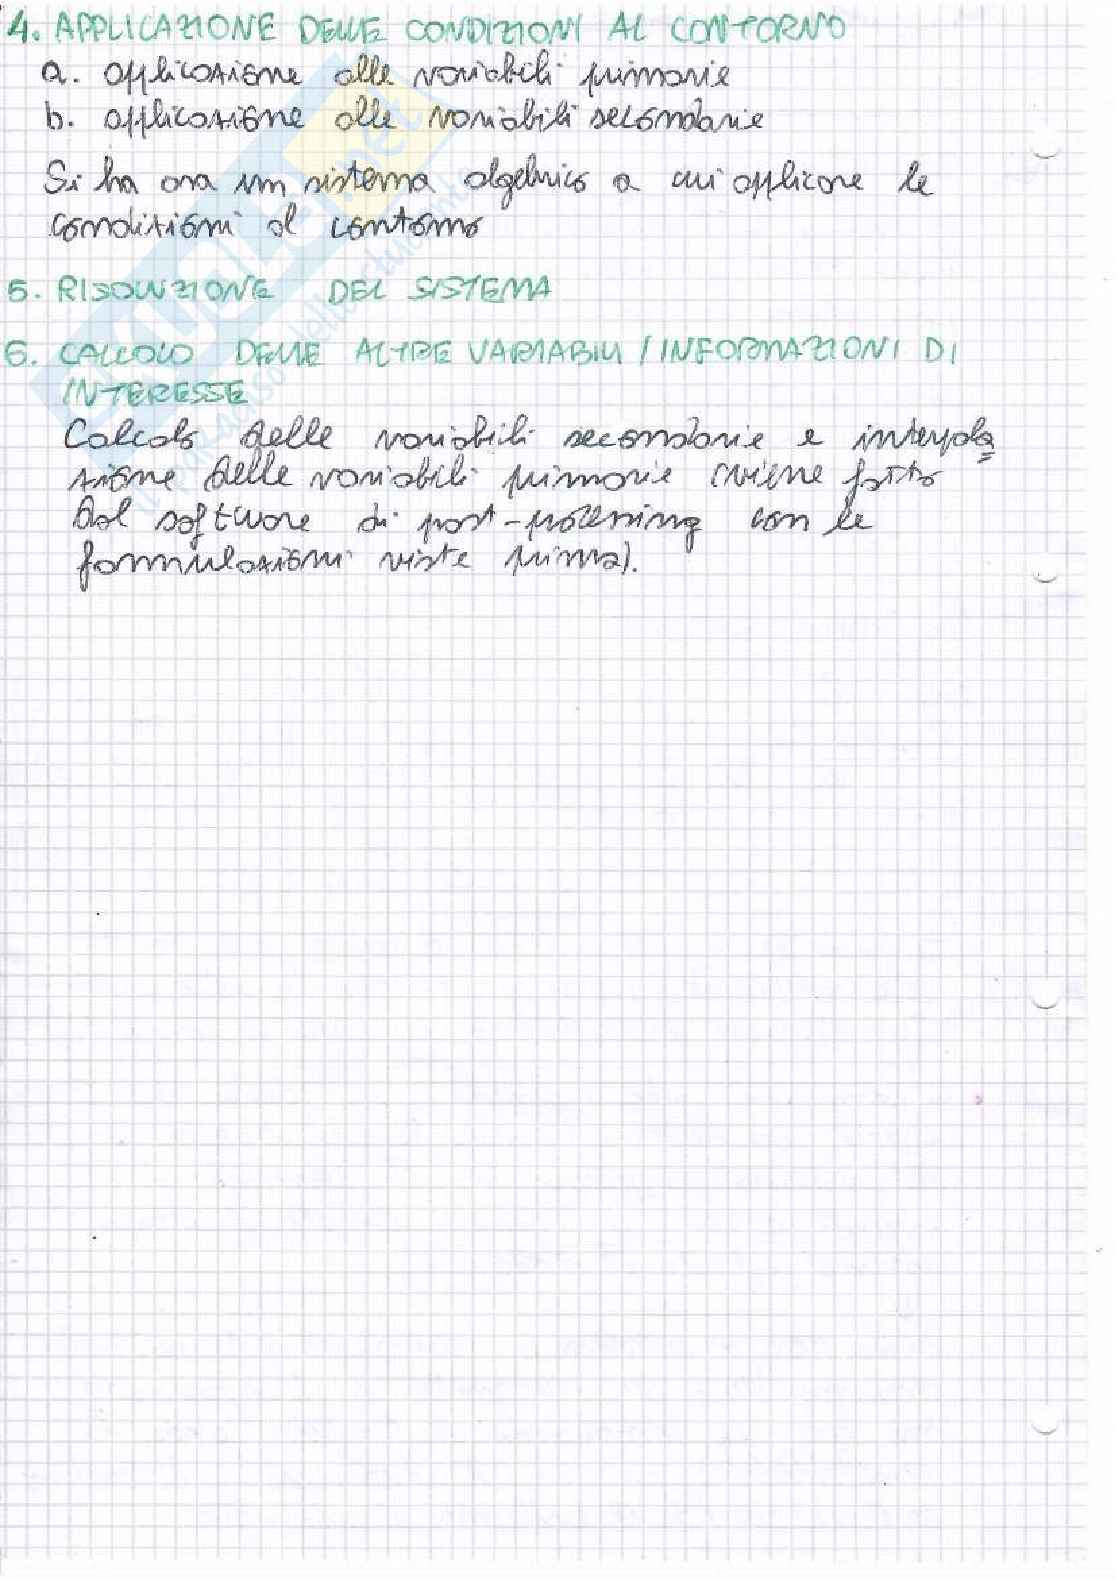 4. APPLICAZIONE DELLE CONDIZIONI AL CONTORNO
a. applicazione alle variabili primarie
b. applicazione alle variabili secondarie
Si ha ora un sistema algebrico a cui applicare le
condizioni al contorno
5. RISOLUZIONE DEL SISTEMA
6. CALCOLO DELLE ALTRE VARIABILI / INFORMAZIONI DI
INTERESSE
Calcolo delle variabili secondarie e interpola
zione delle variabili primarie (viene fatto
dal software di post-processing con le
formulazioni viste prima).